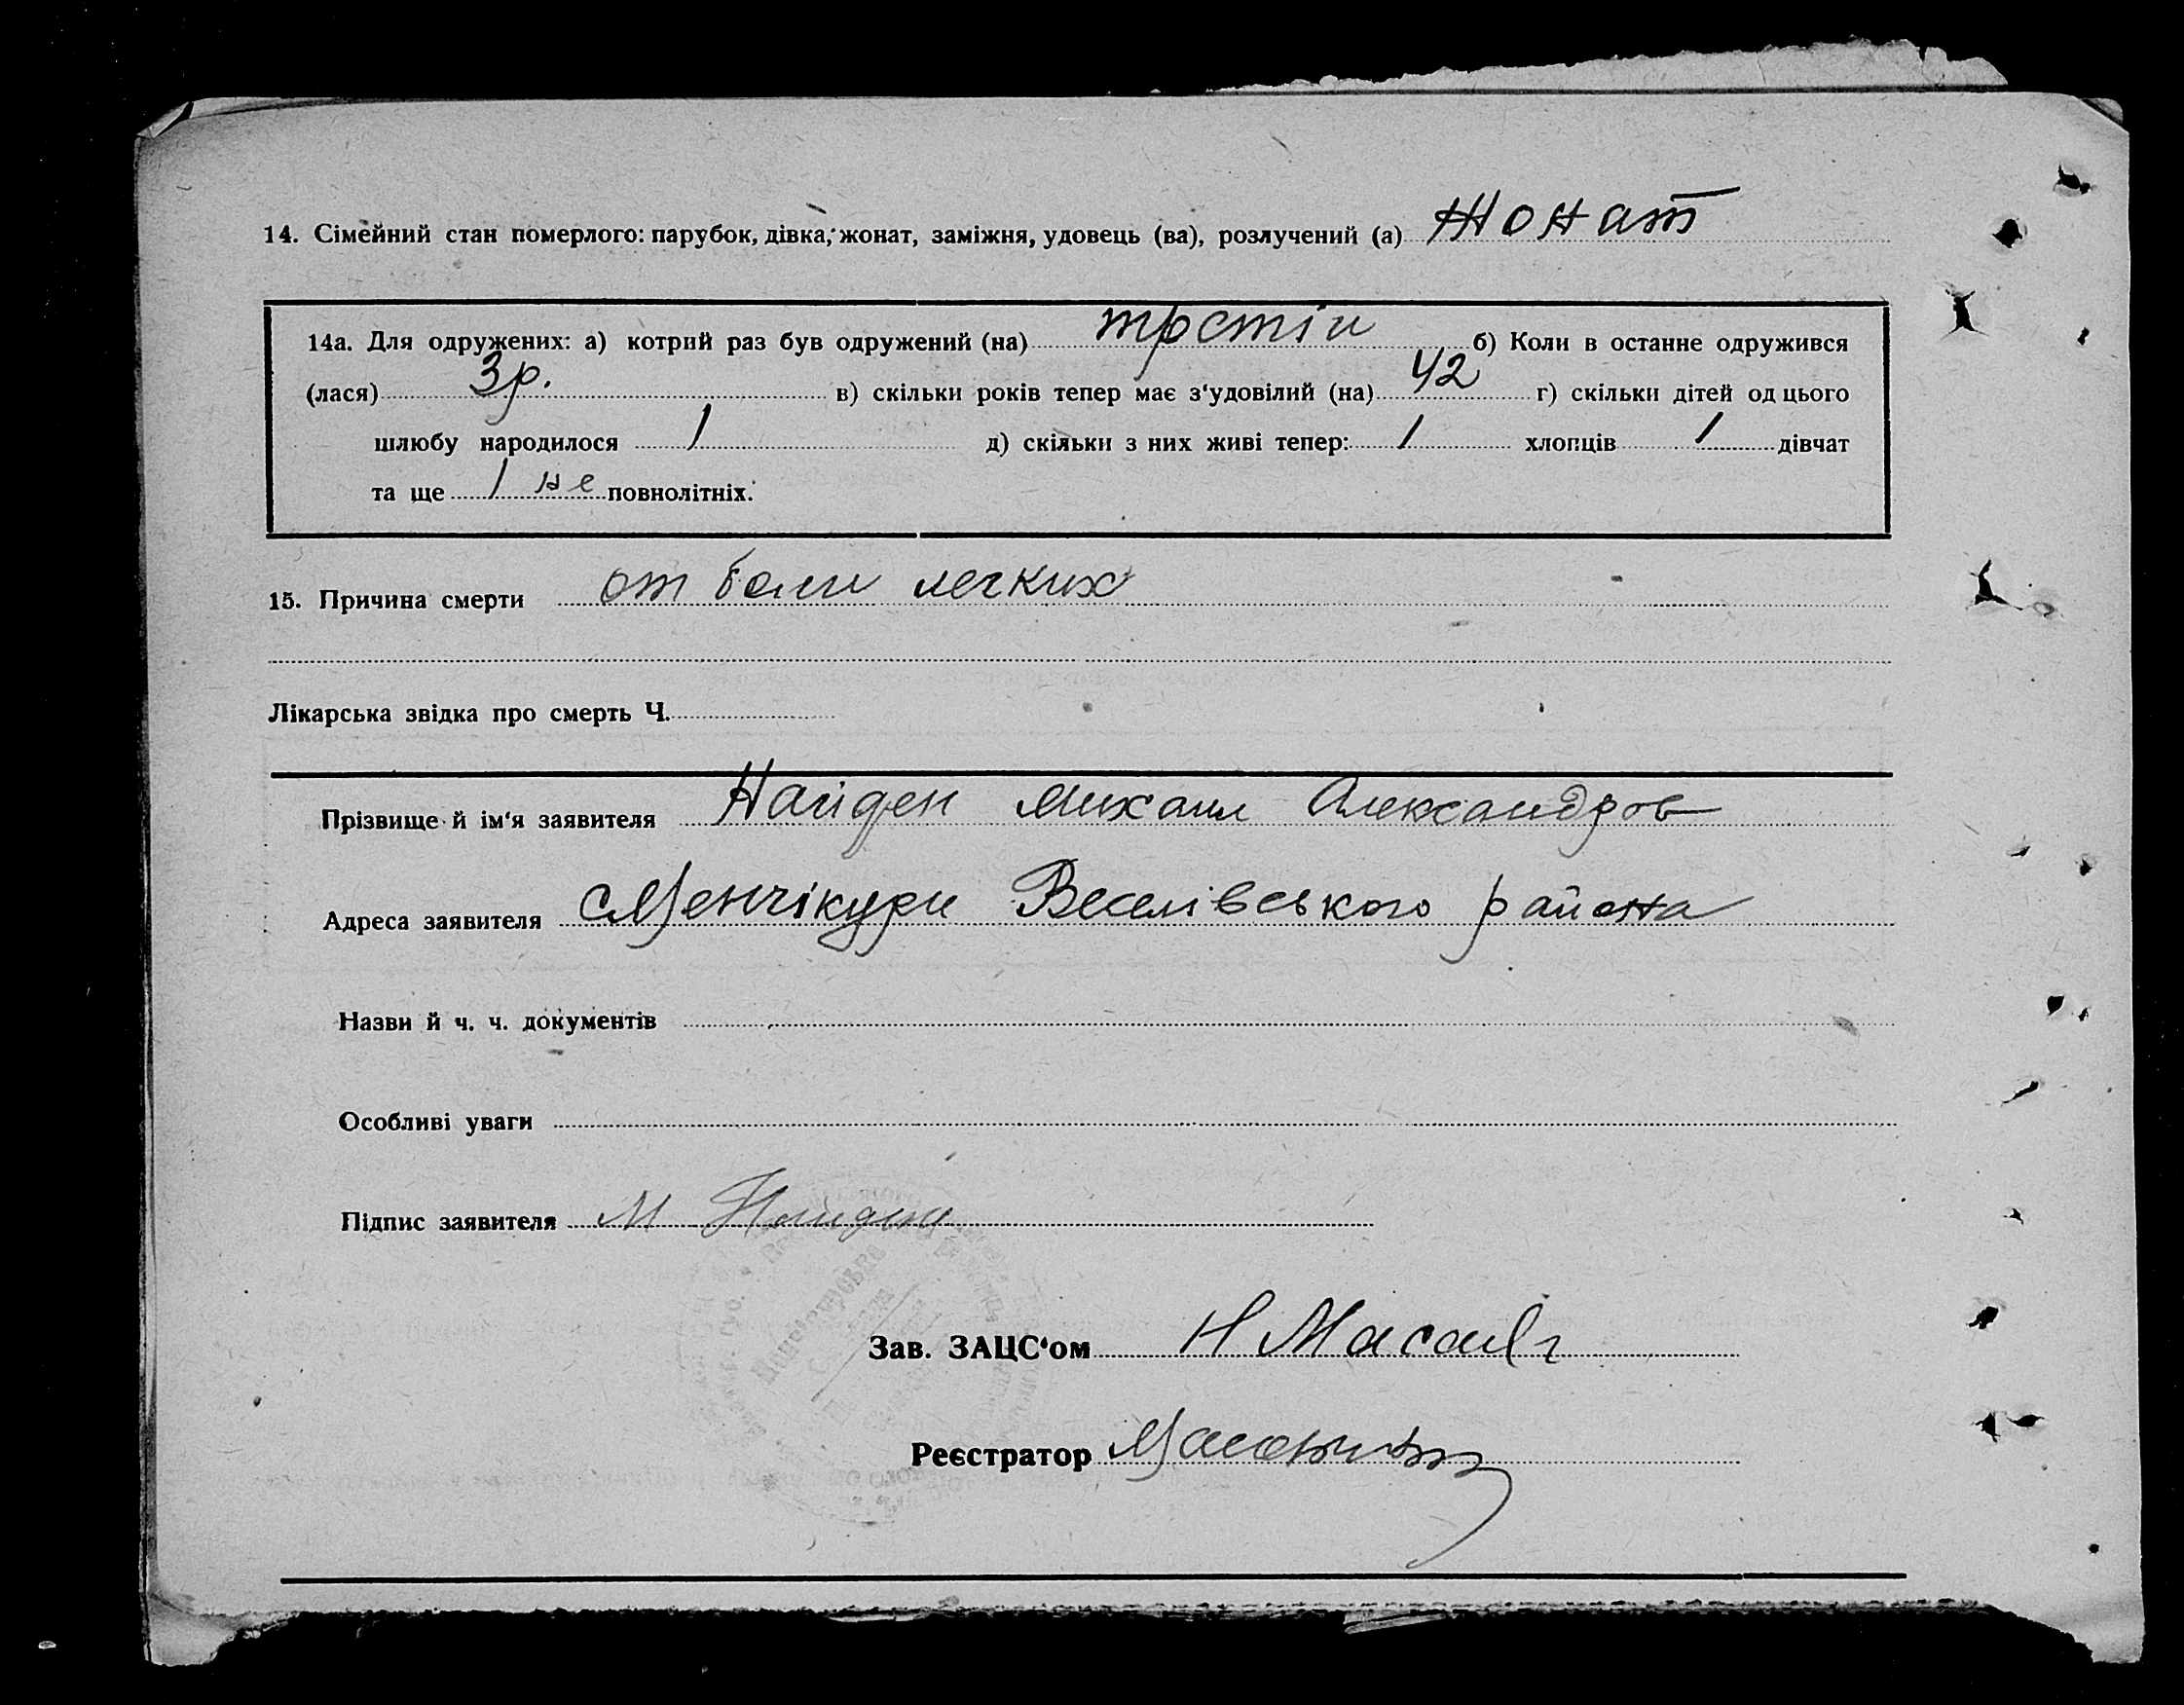 14. Сімейний стан померлого: парубок, дівка, жонат, заміжня, удовець (ва), розлучений (а) жонат
14а. Для одружених: а) котрий раз був одружений (на) тростіи б) Коли в останне одружився
(лася) 3р. в) скільки років тепер має з‘удовілий (на) 42 г) скільки дітей од цього
шлюбу народилося 1 д) скільки з них живі тепер: 1 хлопців 1 дівчат
та ще 1 не повнолітніх.
15. Причина смерти от боли легких
Лікарська звідка про смерть Ч.
Прізвище й ім‘я заявителя Найден Михаил Александров
Адреса заявителя с Менчікури Веселівського района
Назви й ч. ч. документів
Особливі уваги
Підпис заявителя М Найден
Зав. ЗАЦС‘ом Н
Реєстратор